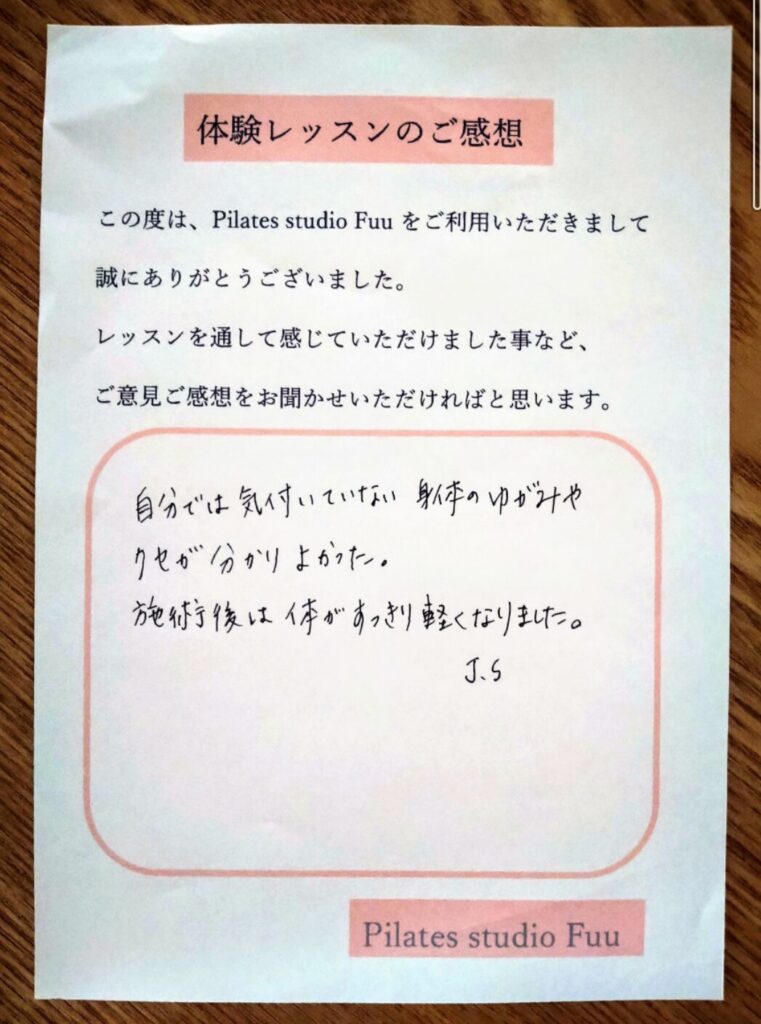 体験レッスンのご感想
この度は、Pilates studio Fuu をご利用いただきまして
誠にありがとうございました。
レッスンを通して感じていただけました事など、
ご意見ご感想をお聞かせいただければと思います。
自分では気付いていない 身体のゆがみや
クセが分かりよかった。
施術後は体がすっきり軽くなりました。
J.S
Pilates studio Fuu